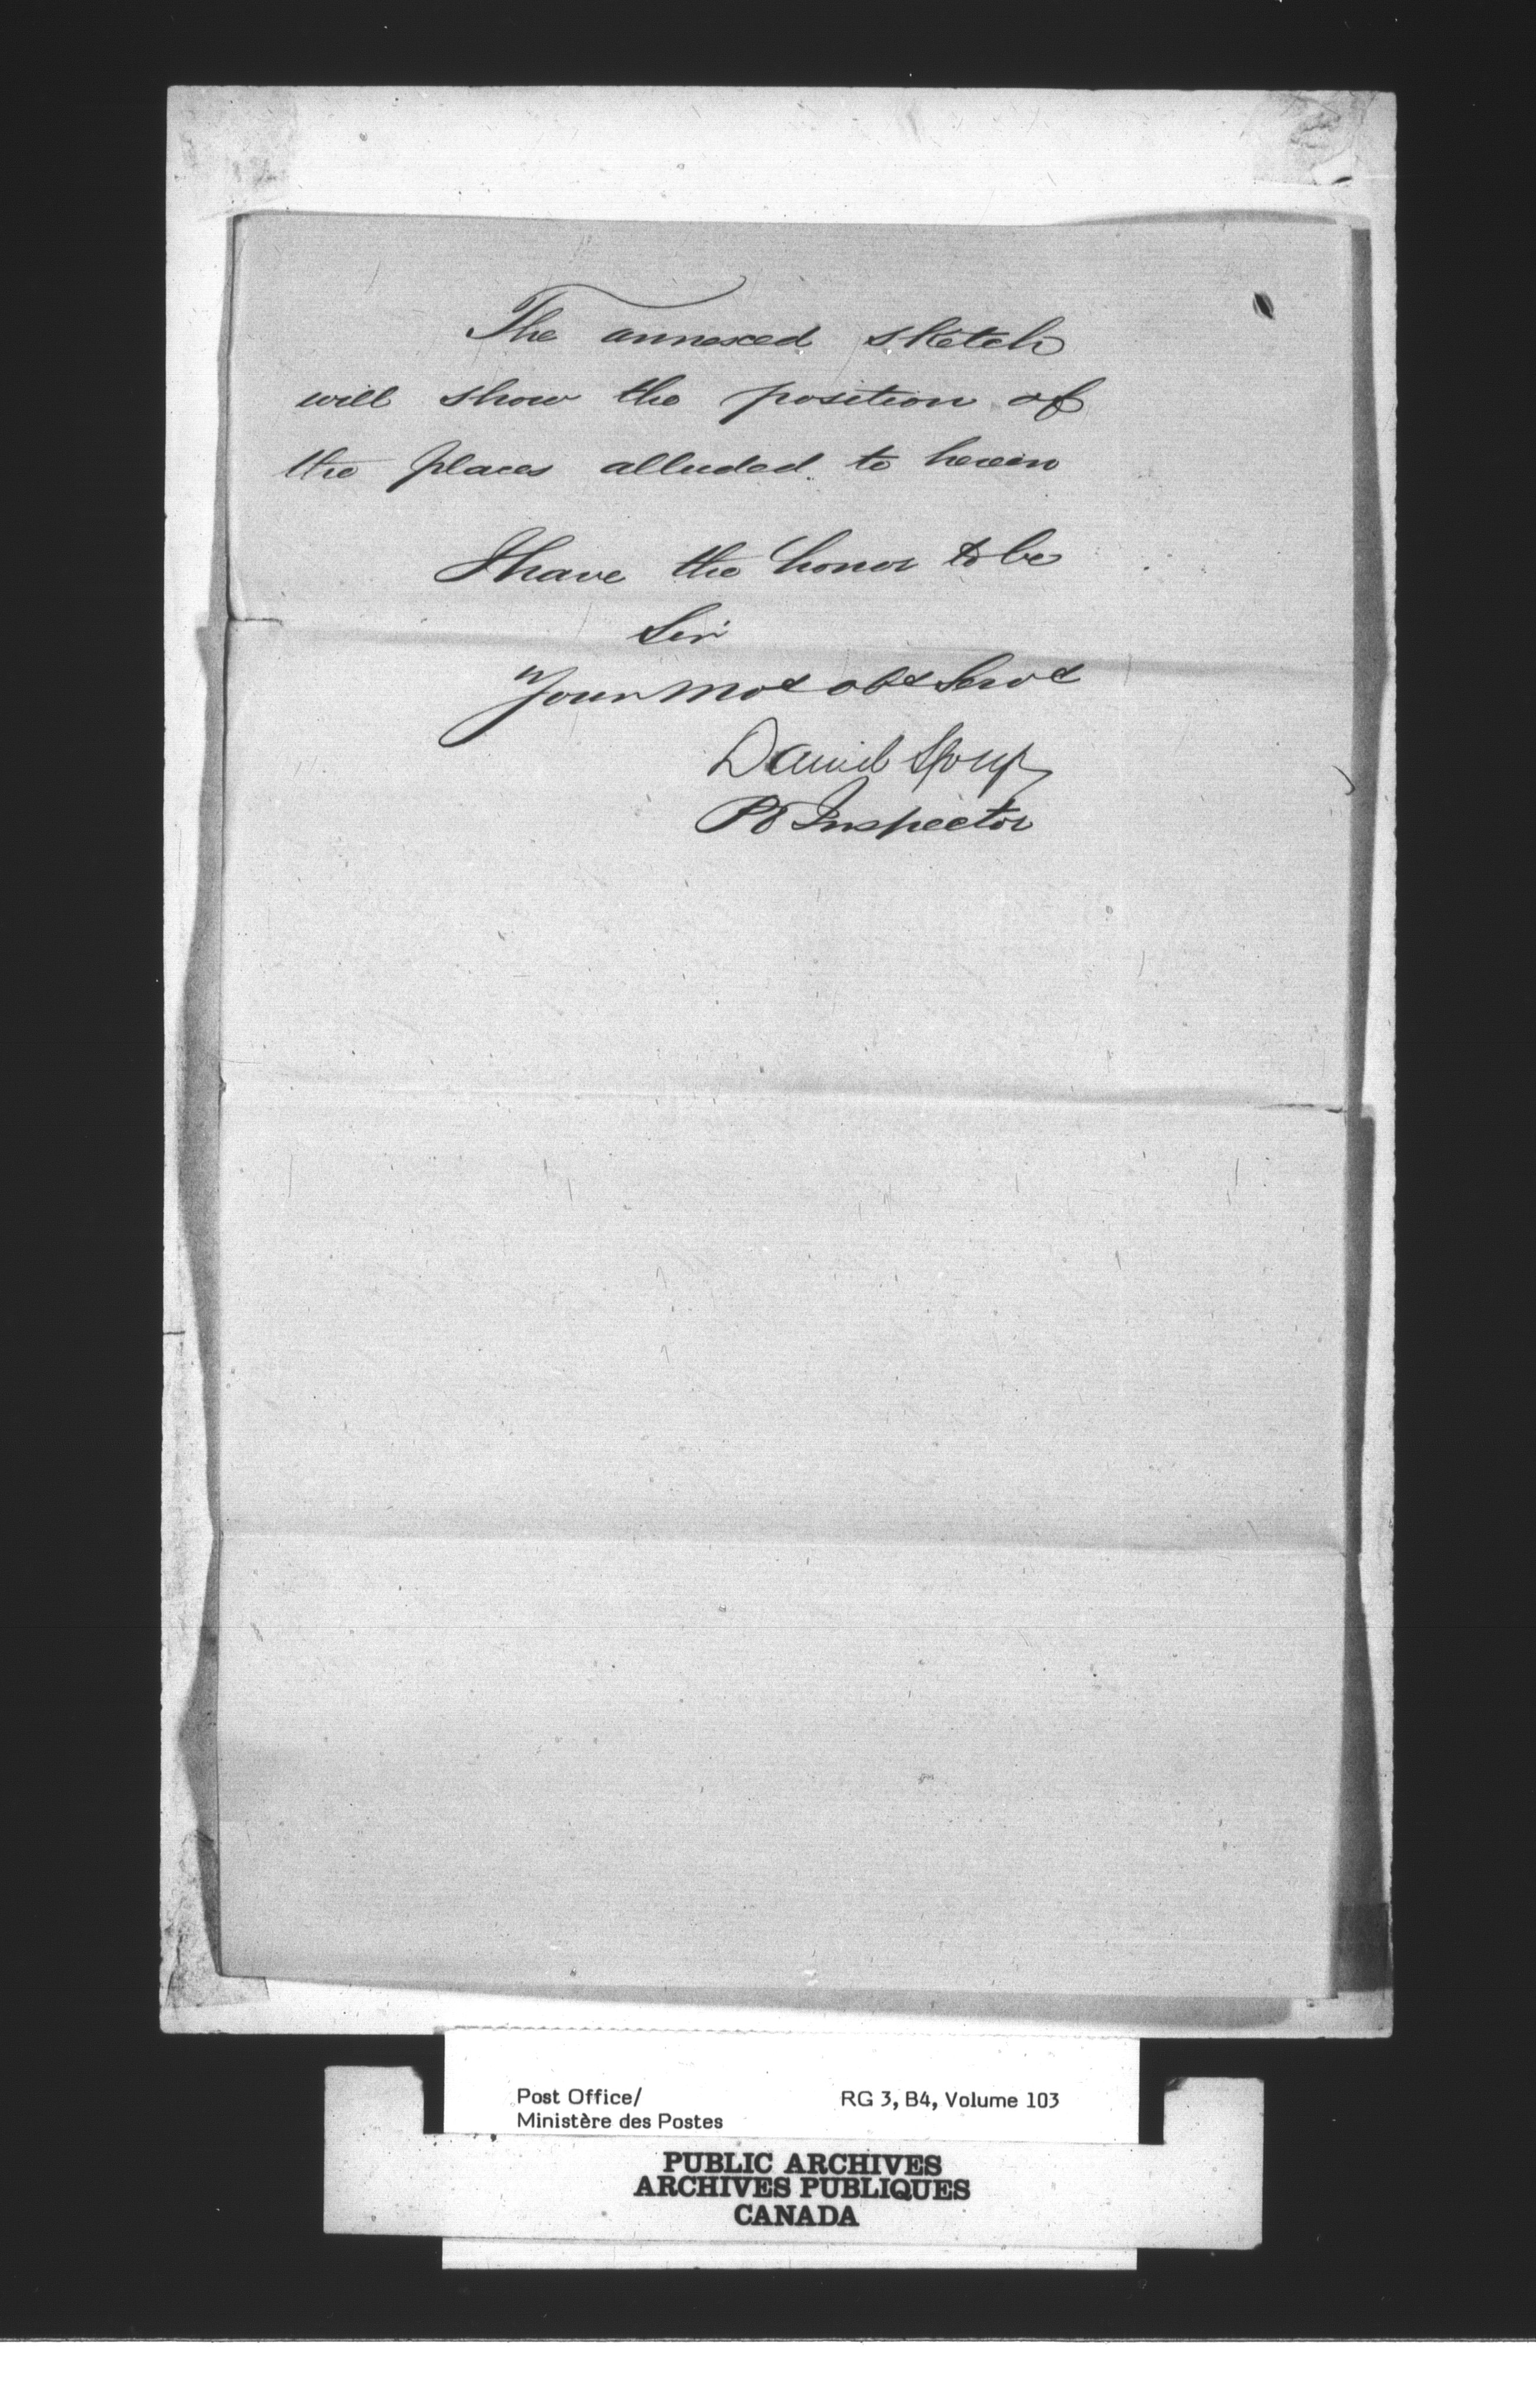 The annexed sketch
will show the position of
the places alluded to herein
I have the honor to be
Sir
Your mot obt Servt
Daniel Spry
PO Inspector
Post Office/
Ministère des Postes
RG 3, B4, Volume 103
PUBLIC ARCHIVES
ARCHIVES PUBLIQUES
CANADA